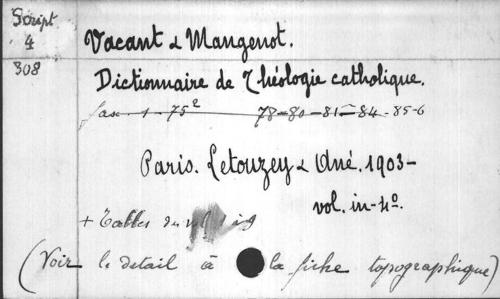 Script
4
308
Vacant & Mangenot.
Dictionnaire de Théologie catholique.
fasc. 1-75² 78-80-81-84-85-6
Paris. Letouzey & Ané. 1903-
vol. in-4º.
+ Tables du
(Voir le detail à la fiche topographique)